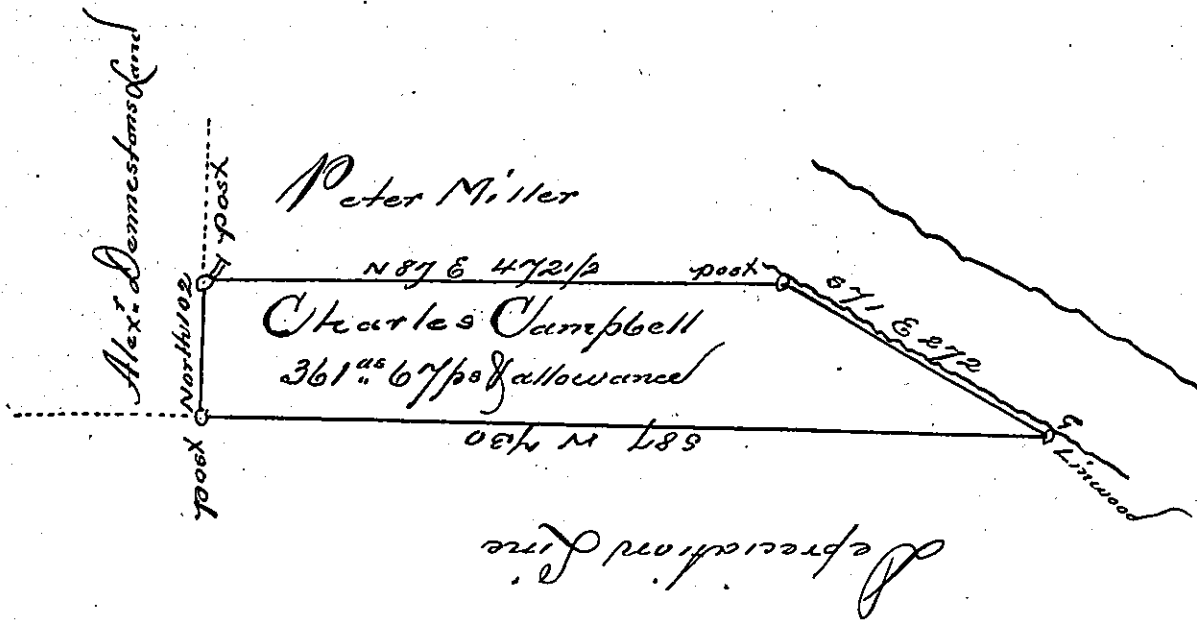 Alexr. Dennestons Land
post
Peter Miller
N 87 E 472 1/2
post
North 102
Charles Campbell
361 as 67 ps & allowance
S 71 E 272
post
S 87 W 730
Linwood
Depreciation Line